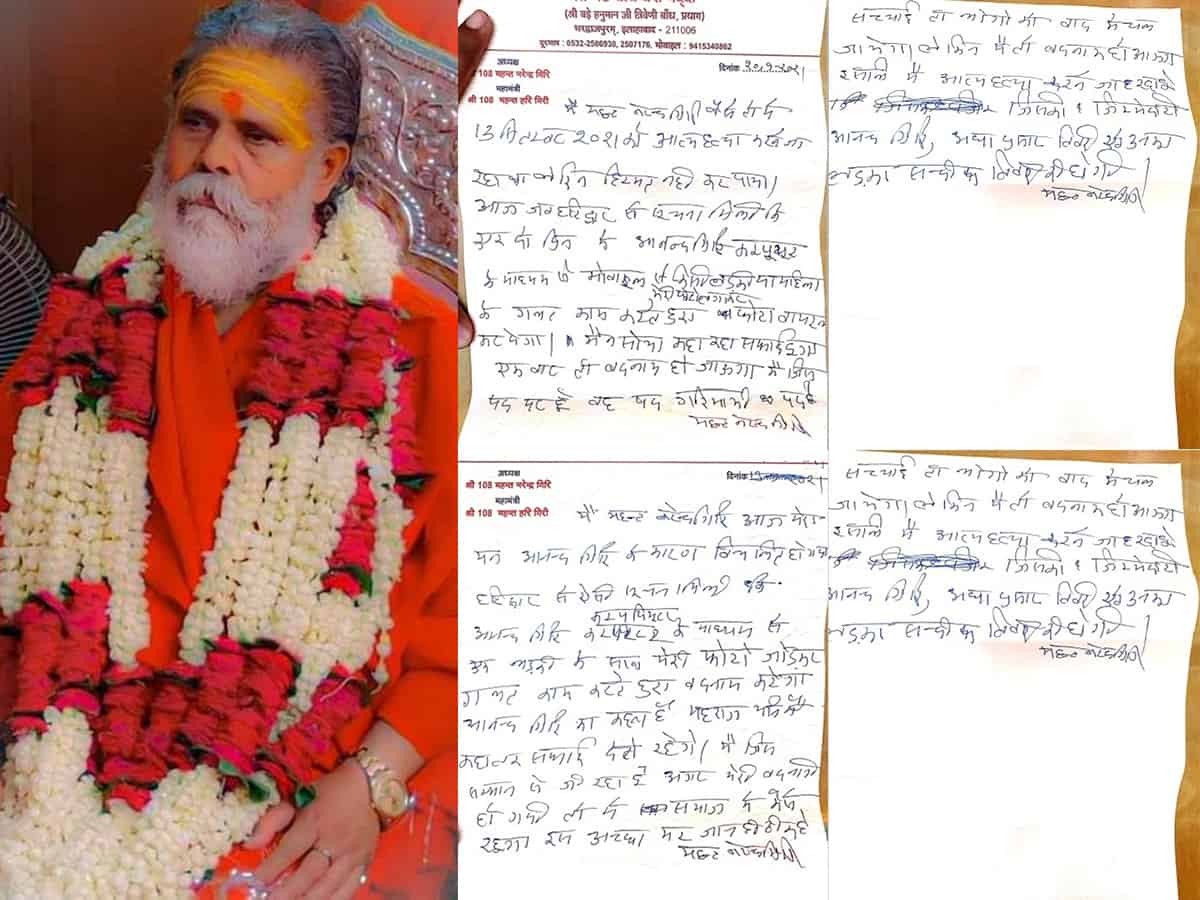 (श्री बड़े हनुमान जी त्रिवेणी बाँध, प्रयाग)
भरद्वाजपुरम्, इलाहाबाद - 211006
दूरभाष : 0532-2506930, 2507176, मोबाईल : 9415340862
अध्यक्ष
श्री 108 महन्त नरेन्द्र गिरि
महामंत्री
श्री 108 महन्त हरि गिरी
दिनांक
मै महन्त नरेन्द्र गिरि
13 सितम्बर 2021 को आत्महत्या करने जा
रहा था लेकिन हिम्मत नही कर पाया।
आज जब हरिद्वार से सूचना मिली कि
एक दो दिन के आनन्द गिरि
के माध्यम से मोबाइल से किसी लड़की या महिला
के गलत काम करते हुए फोटो वायरल
कर देगा। मैने सोचा कहा
एक बार तो बदनाम हो जाऊगा मै जिस
पद पर हूँ वह पद गरिमामयी पद है
महन्त नरेन्द्र गिरि
सच्चाई तो लोगो को बाद मे चल
जायेगा लेकिन मै तो बदनाम हो जाऊगा
इसलिए मै आत्महत्या करने जा रहा
जिसकी जिम्मेदारी
आनन्द गिरि, आद्या प्रसाद तिवारी एवं उनका
लड़का सन्दीप तिवारी की होगी
महन्त नरेन्द्र गिरि
अध्यक्ष
श्री 108 महन्त नरेन्द्र गिरि
महामंत्री
श्री 108 महन्त हरि गिरी
दिनांक
मै महन्त नरेन्द्र गिरि आज मेरा
मन आनन्द गिरि के कारण विचलित हो गया
हरिद्वार से ऐसी सूचना मिली कि
आनन्द गिरि के माध्यम से
एक लड़की के साथ मेरी फोटो जोड़कर
गलत काम करते हुए बदनाम करेगा
आनन्द गिरि का कहना है महराज यानि मै
कहा तक सफाई देते रहेगे। मै जिस
सम्मान से जी रहा हूँ अगर मेरी बदनामी
हो गयी तो मै समाज मे कैसे
रहूगा इस अच्छा मर जाना ही ठीक है
महन्त नरेन्द्र गिरि
सच्चाई तो लोगो को बाद मे चल
जायेगा लेकिन मै तो बदनाम हो जाऊगा
इसलिए मै आत्महत्या करने जा रहा
जिसकी जिम्मेदारी
आनन्द गिरि, आद्या प्रसाद तिवारी एवं उनका
लड़का सन्दीप तिवारी की होगी
महन्त नरेन्द्र गिरि